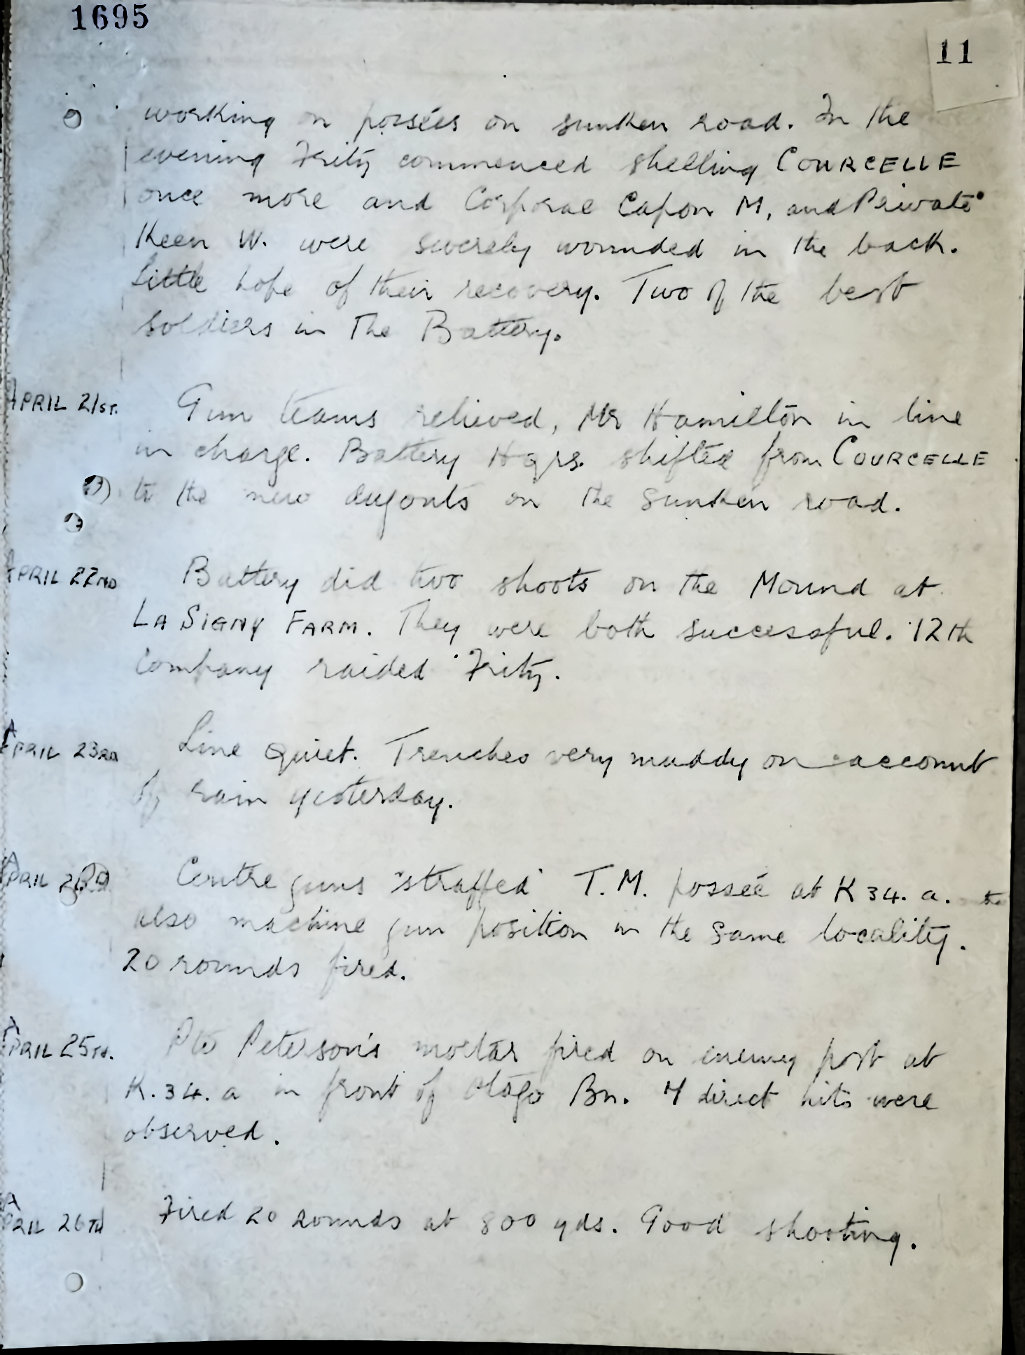 1695
11
working on possées on sunken road. In the
evening Fritz commenced shelling COURCELLE
once more and Corporal Capon M, and Private
Keen W. were severely wounded in the back.
Little hope of their recovery. Two of the best
soldiers in the Battery.
APRIL 21ST. Gun teams relieved, Mr Hamilton in line
in charge. Battery Hqrs. shifted from COURCELLE
to the new dugouts on the sunken road.
APRIL 22ND Battery did two shoots on the Mound at
LA SIGNY FARM. They were both successful. 12th
Company raided Fritz.
APRIL 23RD Line quiet. Trenches very muddy on account
of rain yesterday.
APRIL Centre guns "straffed" T.M. possée at K 34. a.
also machine gun position in the same locality.
20 rounds fired.
APRIL 25TH. Pte Peterson's mortar fired on enemy post at
K. 34. a in front of Otago Bn. 7 direct hits were
observed.
APRIL 26TH Fired 20 rounds at 800 yds. Good shooting.